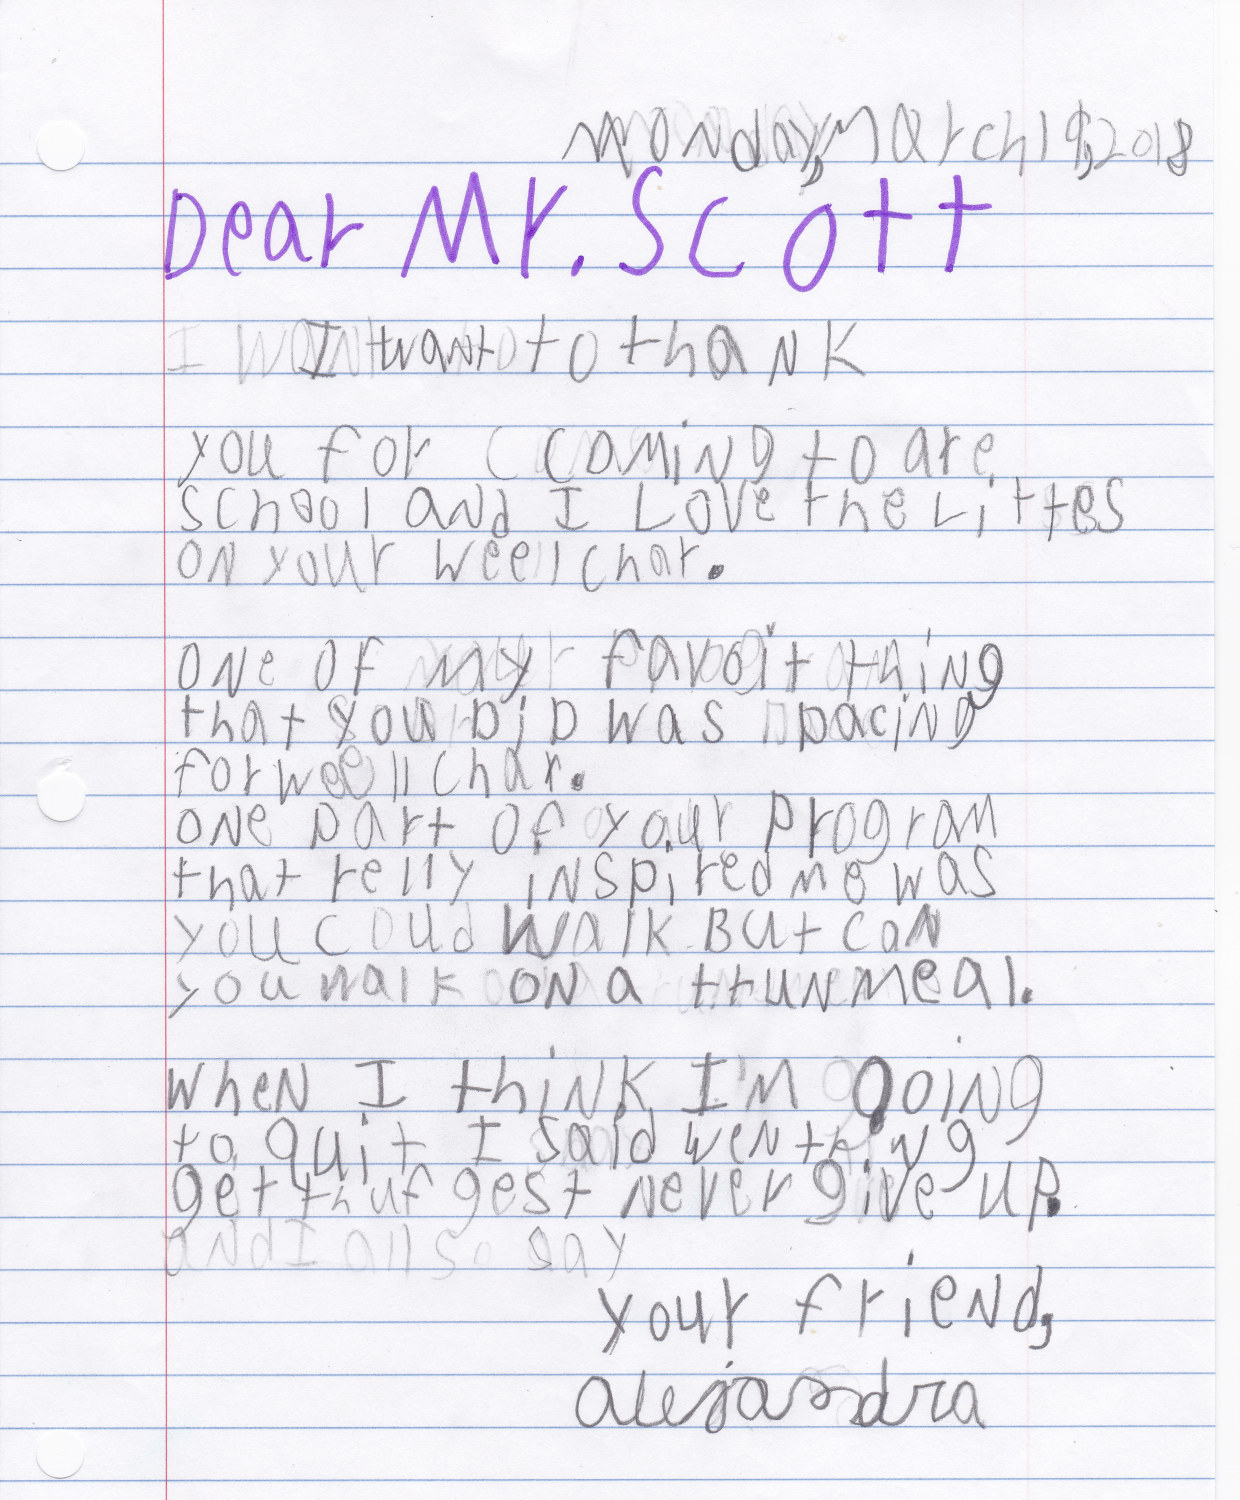 Monday, March 19, 2018
Dear Mr. Scott
I want to thank
you for coming to are
school and I Love the Littes
on your weellchar.
one of my favoit thing
that you DiD was pacing
for weellchar.
one part of your program
that relly inspired me was
you coud walk But can
you walk on a trrunmeal.
when I think I'm going
to quit I said wenthing
get thuf gest never give up.
and I allso say
your friend,
alejandra